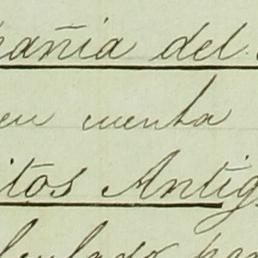 pañia del
en cuenta
itos Antig